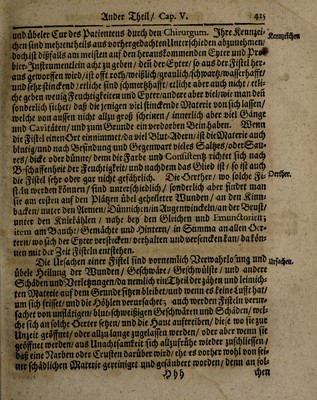 Ander Theil / Cap. V. 425
und übeler Cur des Patientens durch den Chirurgum. Ihre Kennzei-
chen sind mehrentheils aus vorhergedachten Unterschieden abzunehmen/
doch ist dißfalls am meisten auf den herauskommenden Eyter und Pro-
bier-Instrumentlein acht zu geben / denn der Eyter / so aus der Fistel her-
aus geworffen wird / ist offt roth / weißlich / graulich / schwartz / wasserhafft /
und sehr stinckend / etliche sind schmertzhafft / etliche aber auch nicht / etli-
che geben wenig Feuchtigkeiten und Eyter / andere aber viel / wie man den
sonderlich siehet / daß die jenigen viel stinckende Materie von sich lassen /
welche von aussen nicht allzu groß scheinen / innerlich aber viel Gänge
und Cavitäten / und zum Grunde ein verdorben Bein haben. Wenn
die Fistel einen Ort einnimmet / da viel Blut-Adern / ist die Materie auch
blutig / und nach Befindung und Gegenwart vieles Saltzes / oder Sau-
res / dicke oder dünne / denn die Farbe und Consistentz richtet sich nach
Beschaffenheit der Feuchtigkeit / und nachdem das Glied ist / so ist auch
die Fistel sehr oder gar nicht gefährlich. Die Oerther / wo solche Fi-
steln werden können / sind unterschiedlich / sonderlich aber findet man
sie am ersten auf den Plätzen übel geheileter Wunden / an den Kinn-
backen / unter den Armen / Dünnichen / in Augenwinckeln / an der Brust /
unter den Kniekählen / nahe bey den Gleichen und Emunctorien;
item am Bauche / Gemächte und Hintern / in Summa an allen Oer-
tern / wo sich der Eyter verstocken / verhalten und versencken kan / da kön-
nen mit der Zeit Fisteln entstehen.
Die Ursachen einer Fistel sind vornemlich Verwahrlosung und
übele Heilung der Wunden / Geschwäre / Geschwülste / und andere
Schäden und Verletzungen / da nemlich ein Theil der zähen und leimich-
ten Materie auf dem Grunde sitzen bleibet / und wenn es keine Lufft hat /
um sich frisset / und die Höhlen verursachet; auch werden Fisteln verur-
sachet von unflätigen / blut-schweißigen Geschwären und Schäden / wel-
che sich an solche Oerter setzen / und die Haut auftreiben / diese wo sie zur
Unzeit geöffnet / oder allzu lange zugelassen werden / oder aber wenn sie
geöffnet werden / aus Unachtsamkeit sich allzufrühe wieder zuschliessen /
daß eine Narben oder Crusten darüber wird / ehe es vorher wohl von sei-
ner schädlichen Materie gereiniget und gesäubert worden / denn an sol-
Hhh chen
Kennzeichen
Oerther.
Ursachen.